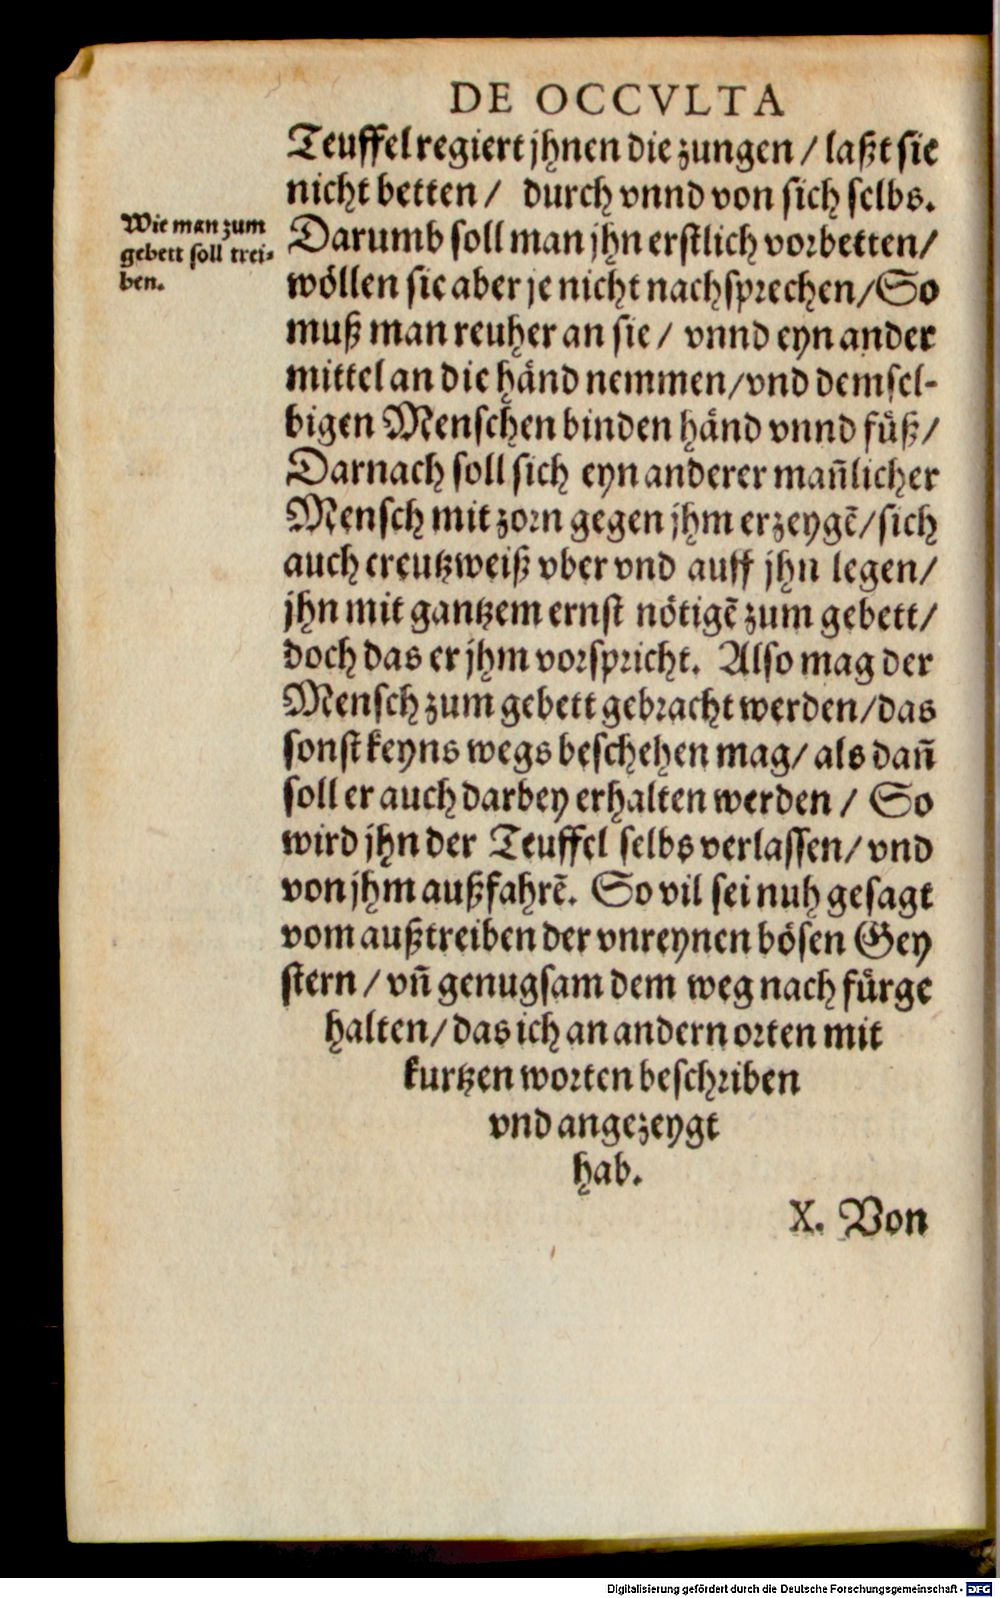 DE OCCVLTA
Teuffel regiert jhnen die zungen / laßt sie
nicht betten / durch vnnd von sich selbs.
Wie man zum
gebett soll trei-
ben.
Darumb soll man jhn erstlich vorbetten /
wöllen sie aber je nicht nachsprechen / So
muß man reuher an sie / vnnd eyn ander
mittel an die händ nemmen / vnd demsel-
bigen Menschen binden händ vnnd füß /
Darnach soll sich eyn anderer mañlicher
Mensch mit zorn gegen jhm erzeygẽ / sich
auch creutzweiß vber vnd auff jhn legen /
jhn mit gantzem ernst nötigẽ zum gebett /
doch das er jhm vorspricht. Also mag der
Mensch zum gebett gebracht werden / das
sonst keyns wegs beschehen mag / als dañ
soll er auch darbey erhalten werden / So
wird jhn der Teuffel selbs verlassen / vnd
von jhm außfahrẽ. So vil sei nuh gesagt
vom außtreiben der vnreynen bösen Gey
stern / vñ genugsam dem weg nach fürge
halten / das ich an andern orten mit
kurtzen worten beschriben
vnd angezeygt
hab.
X. Von
Digitalisierung gefördert durch die Deutsche Forschungsgemeinschaft - DFG